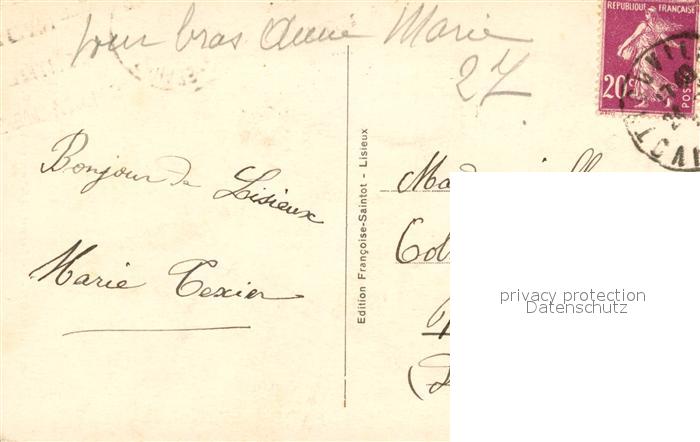 pour bras Annie Marie
27
REPUBLIQUE FRANÇAISE
20c
POSTES
Bonjour de Lisieux
Marie Texier
Edition Françoise-Saintot - Lisieux
privacy protection
Datenschutz